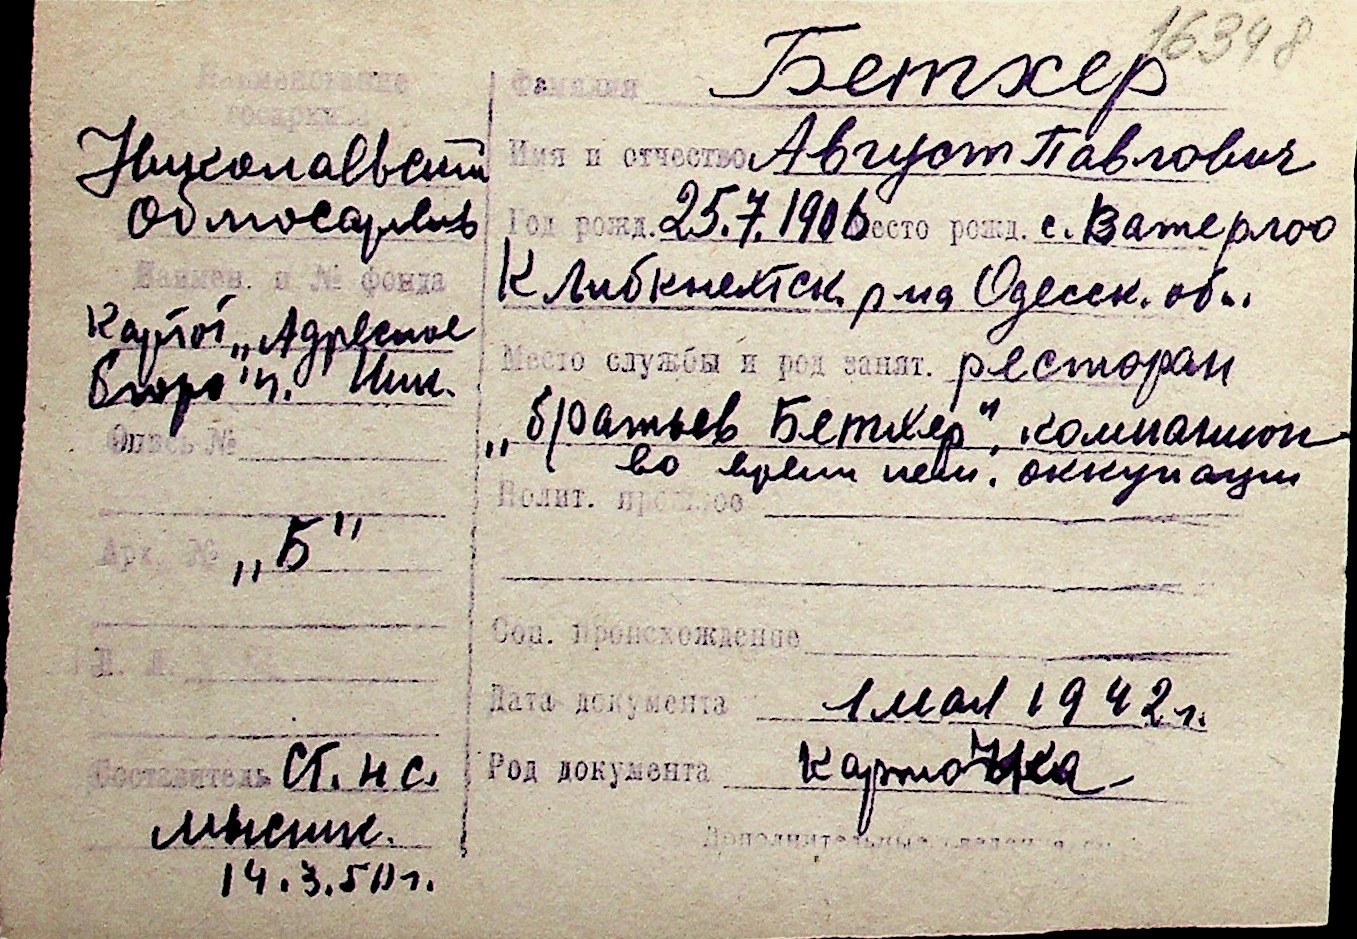 16348
Наименование
госархива
Николаевский
Облгосархив
Наимен. и № фонда
Картот „Адресное
бюро" г. Ник.
Опись №
Арх. № „Б"
Составитель Ст. н с.
14.3.50 г.
Фамилия Бетхер
Имя и отчество Август Павлович
Год рожд. 25.7.1906 Место рожд. с. Ватерлоо
К Либкнехтск. р-на Одесск. обл.
Место службы и род занят. ресторан
„братьев Бетхер", компаньон
во время нем. оккупации
Полит. прошлое
Соц. происхождение
Дата документа 1 мая 1942 г.
Род документа карточка
Дополнительные сведения